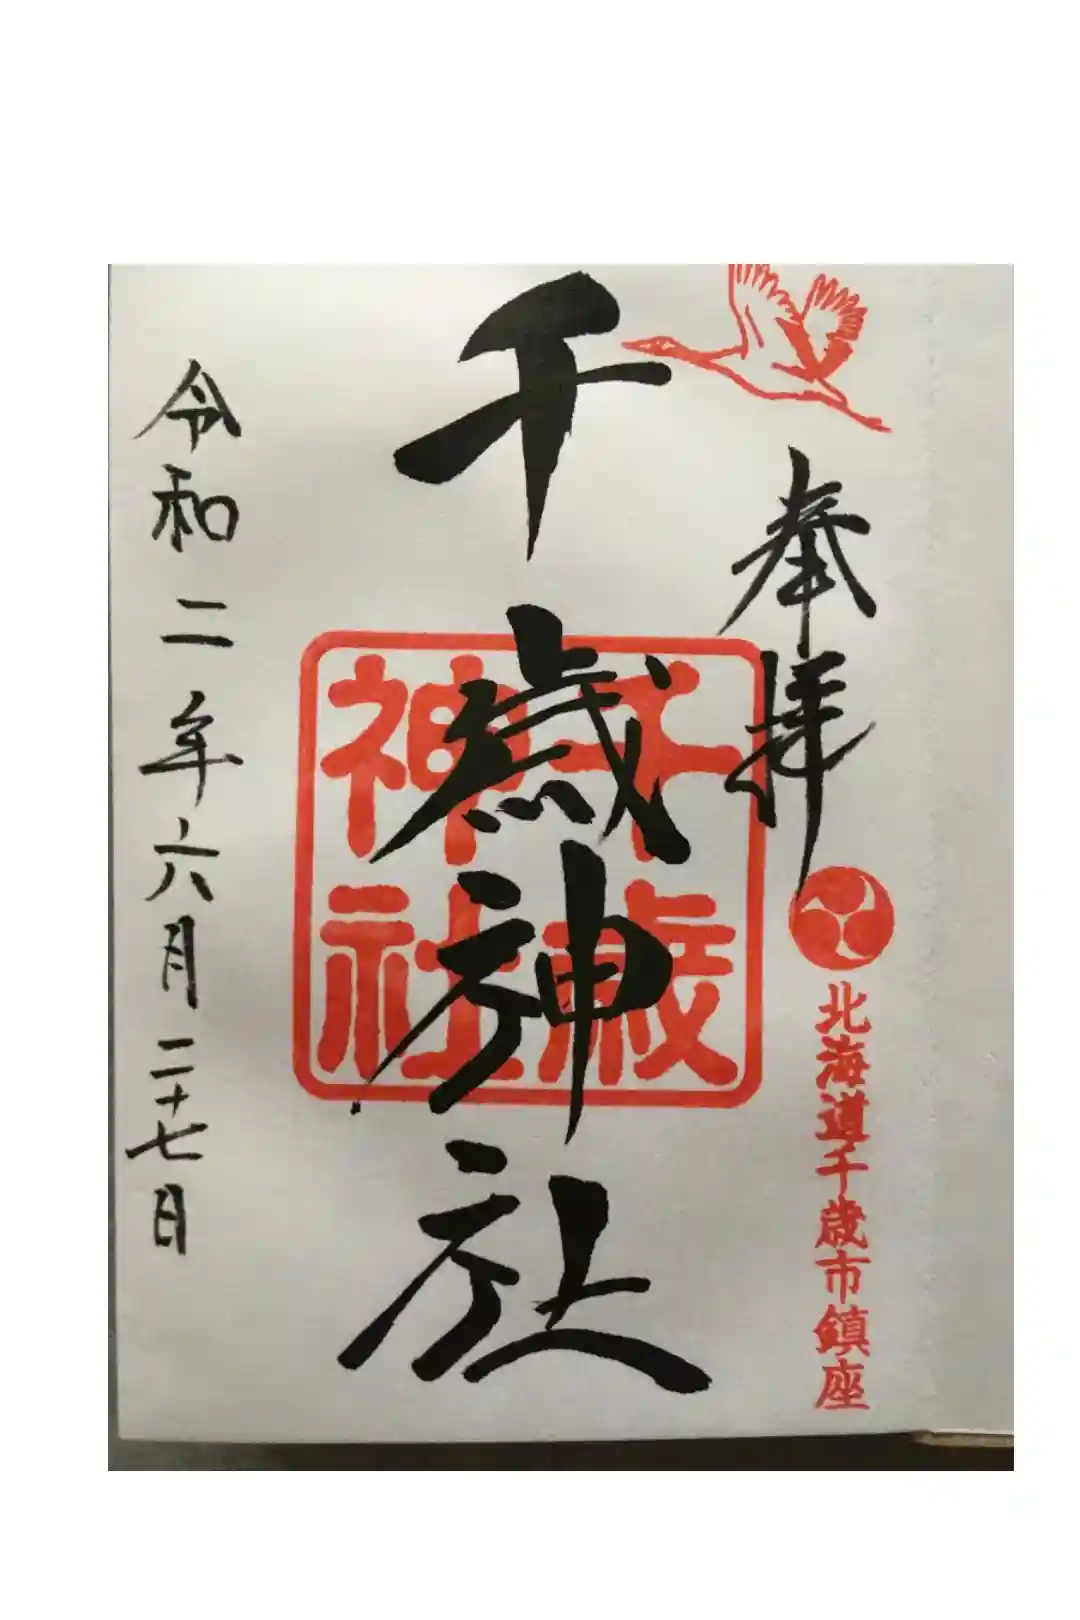 奉拝
北海道千歳市鎮座
千歳神社
千歳
神社
令和二年六月二十七日